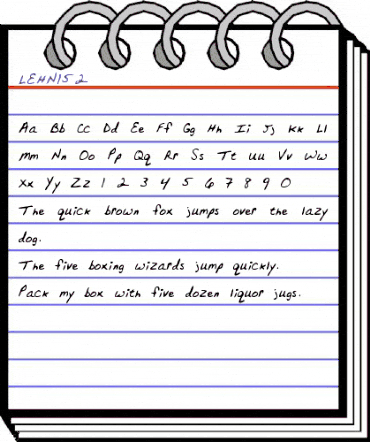 LEHN152
Aa Bb Cc Dd Ee Ff Gg Hh Ii Jj Kk Ll
mm Nn Oo Pp Qq Rr Ss Tt uu Vv Ww
Xx Yy Zz 1 2 3 4 5 6 7 8 9 0
The quick brown fox jumps over the lazy
dog.
The five boxing wizards jump quickly.
Pack my box with five dozen liquor jugs.